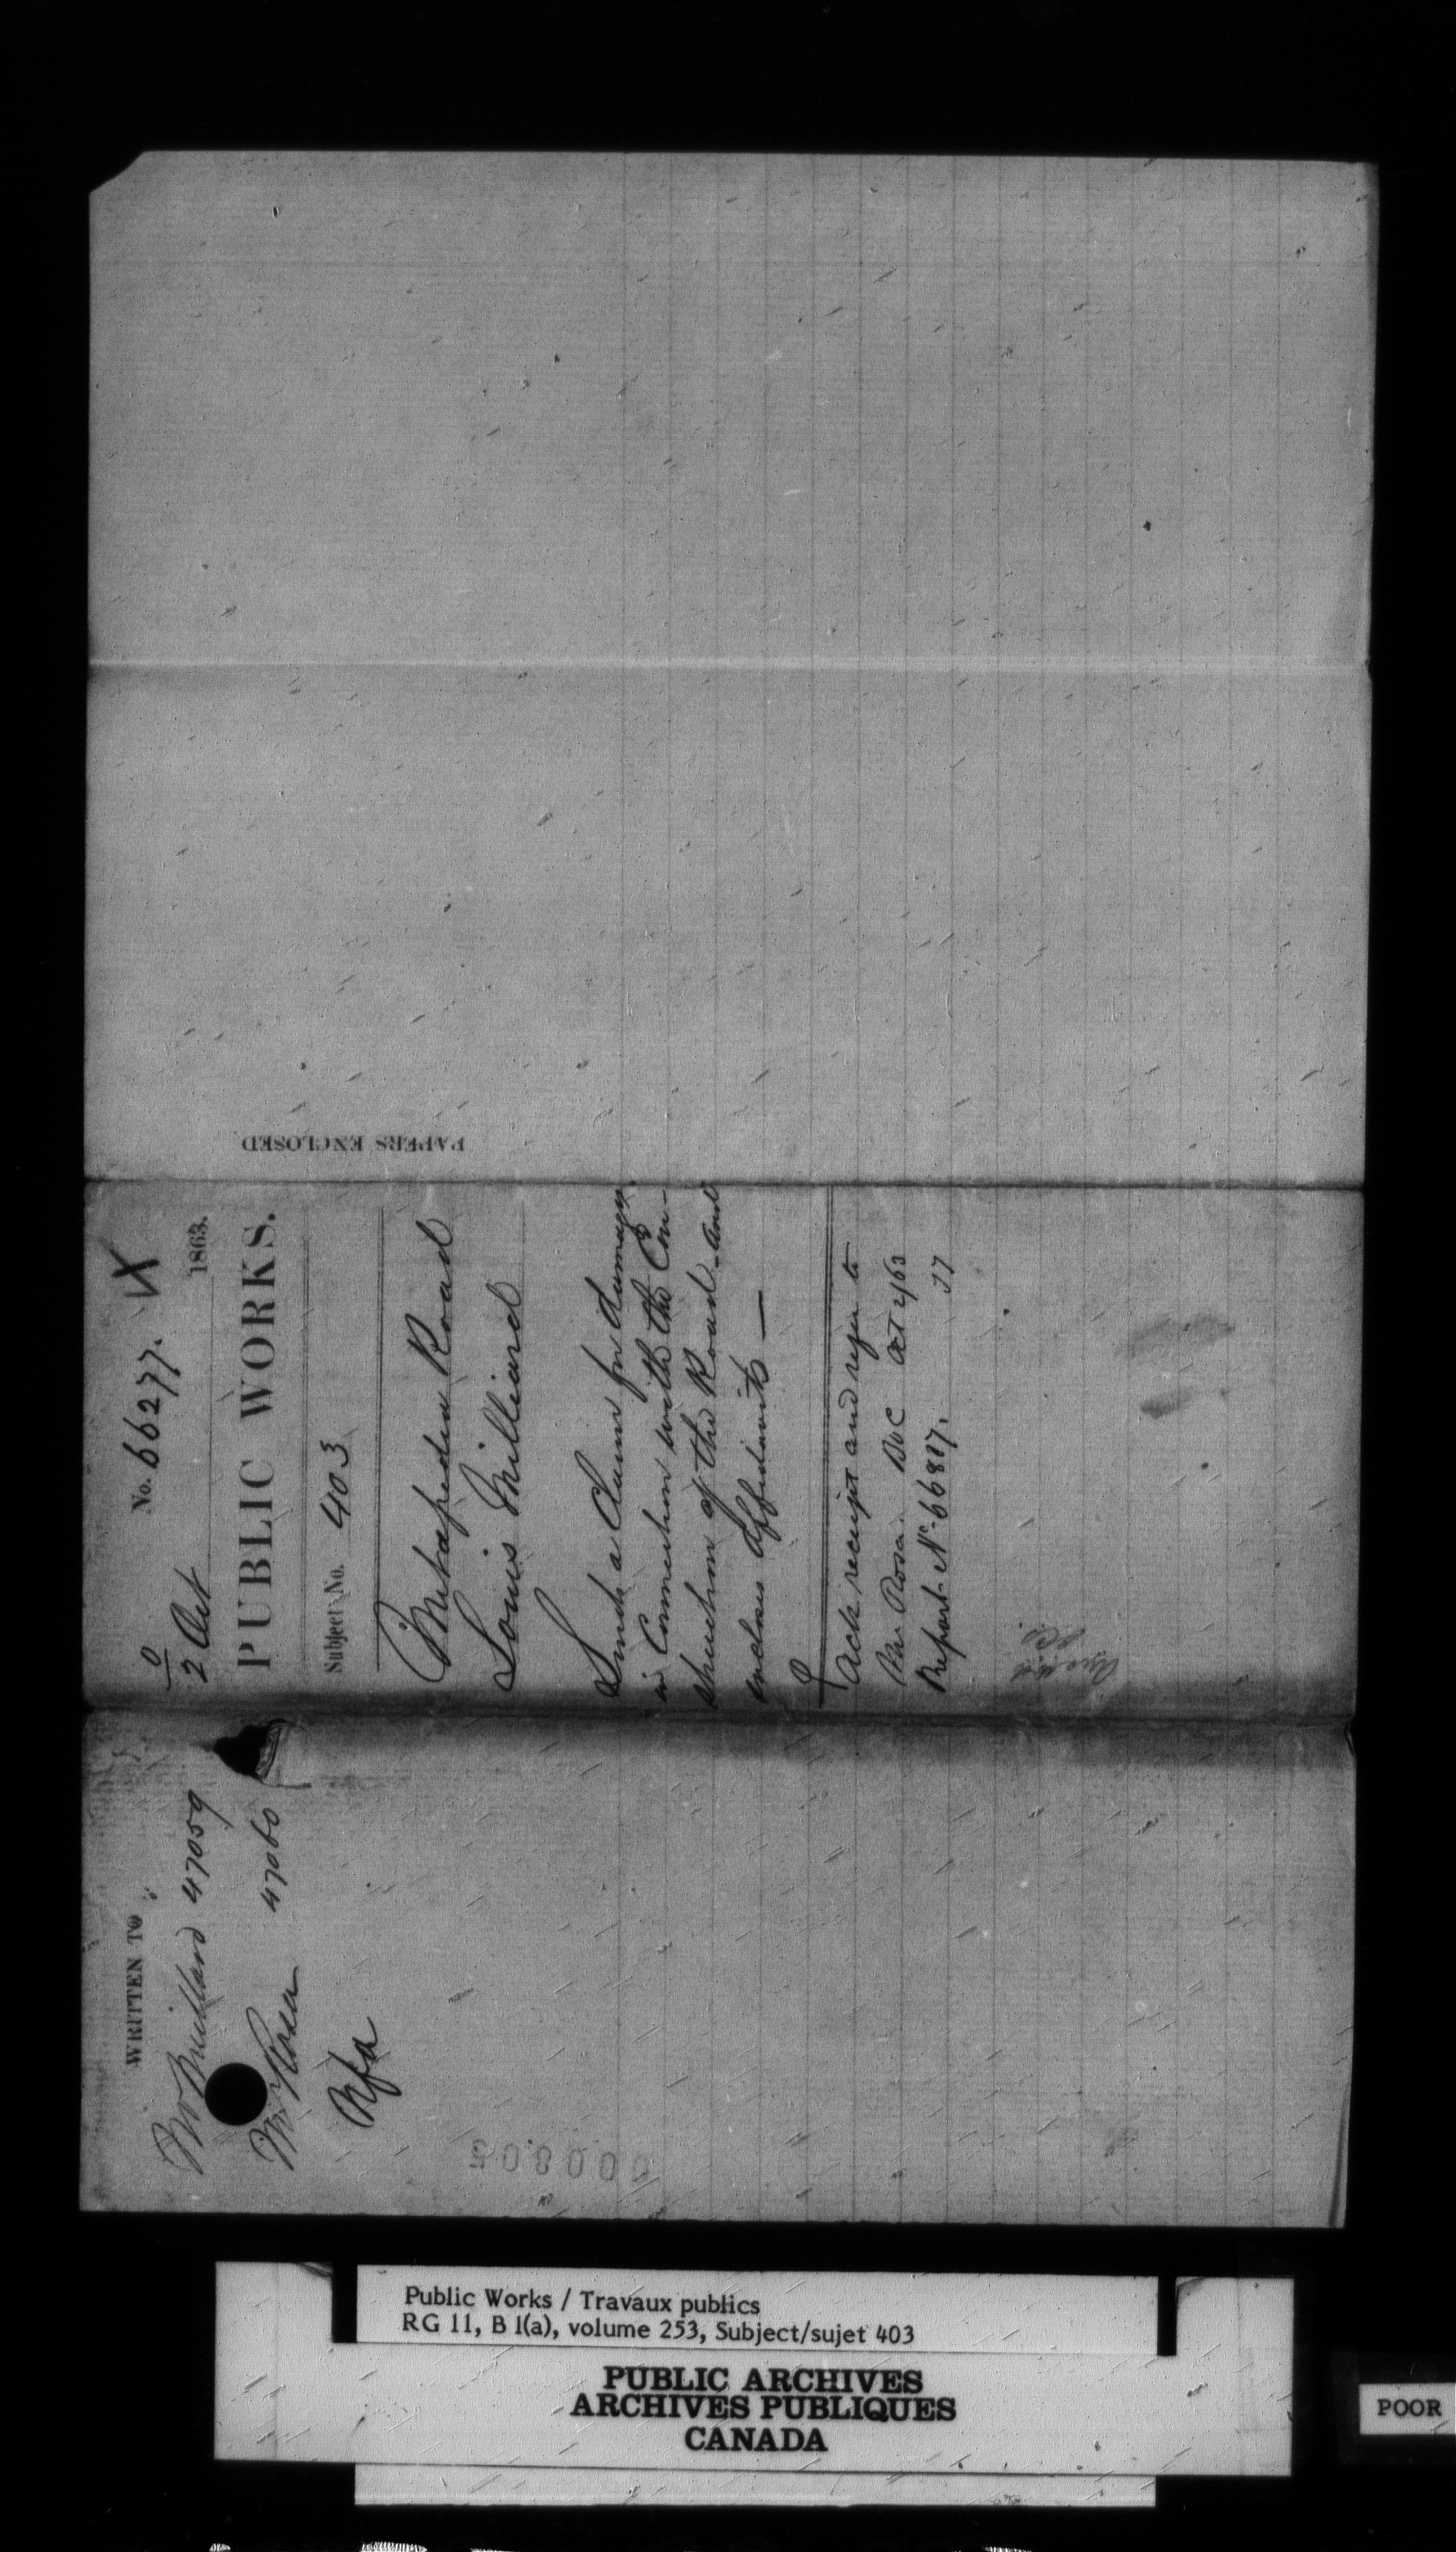 PAPERS ENCLOSED
No. 66277.
2 Oct 1863.
PUBLIC WORKS.
Subject No. 403
Metapedia Road
Louis Milliard
Sends a Claim for damages
in Connection with the Con-
struction of the Road and
incloses Affidavits —
Ack receipt and refer to
Mr Rosa. Oct 2/63
Report No 66887.
WRITTEN TO
Mr Milliard 47059
Mr Rosa 47060
000805
Public Works / Travaux publics
RG 11, B 1(a), volume 253, Subject/sujet 403
PUBLIC ARCHIVES
ARCHIVES PUBLIQUES
CANADA
POOR